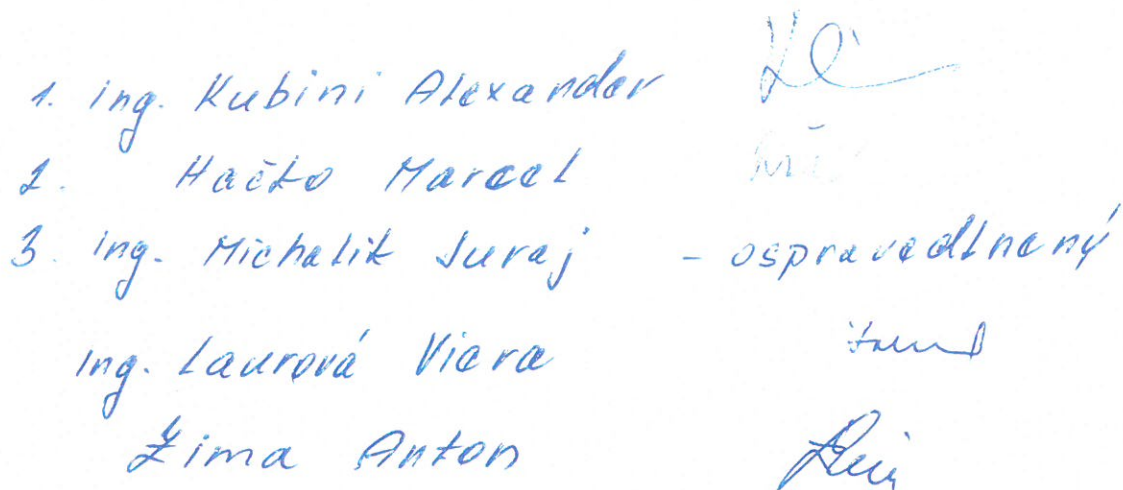 1. Ing. Kubini Alexander
2. Hačko Marcel
3. Ing. Michalik Juraj - ospravedlnený
Ing. Laurová Viera
Zima Anton